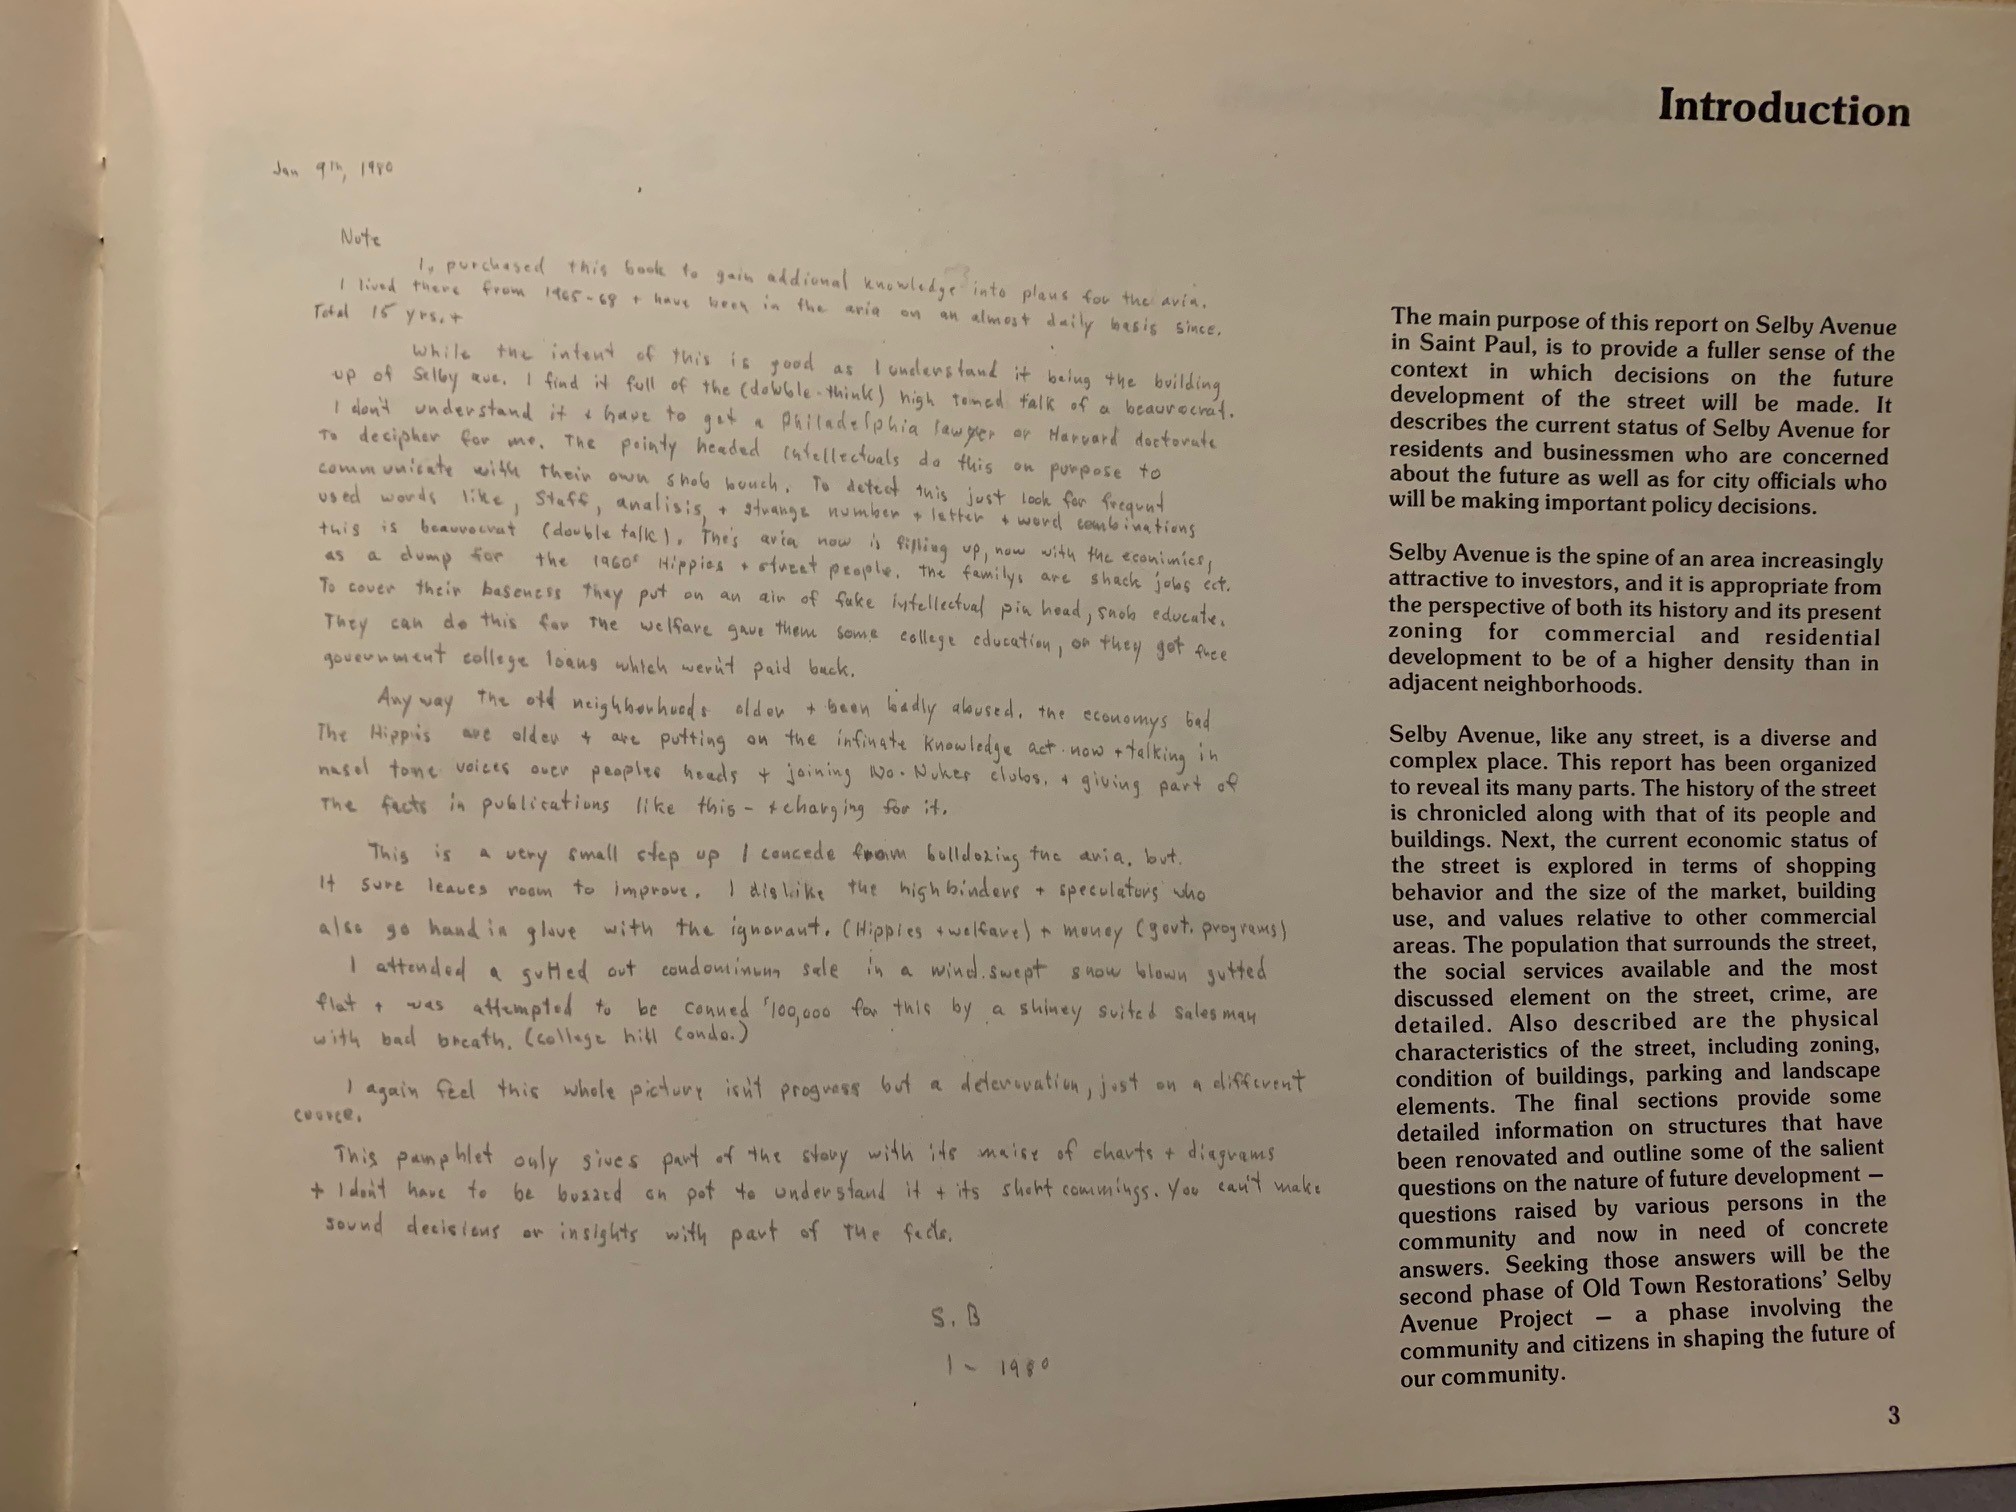 Introduction
Jan 9th, 1980
Note
I, purchased this book to gain addional knowledge into plans for the aria.
I lived there from 1965-68 + have been in the aria on an almost daily basis since.
Total 15 yrs.+
While the intent of this is good as I understand it being the building
up of Selby ave. I find it full of the (dowble-think) high toned talk of a beauvocrat.
I don't understand it + have to get a Philadelphia lawyer or Harvard doctorate
To decipher for me. The pointy headed intellectuals do this on purpose to
communicate with their own snob bunch. To detect this just look for frequnt
used words like, Staff, analisis, + strange number + letter + word combinations
this is beauvocrat (double talk). The's aria now is filling up, now with the econimics,
as a dump for the 1960s Hippies + street people. The familys are shack jobs ect.
To cover their baseness they put on an air of fake intellectual pin head, snob educate.
They can do this for the welfare gave them some college education, or they got free
government college loans which wern't paid back.
Any way the old neighborhoods older + been badly abused. the economys bad
The Hippis are older + are putting on the infinate knowledge act now + talking in
nasel tone voices over peoples heads + joining No-Nuker clubs. + giving part of
The facts in publications like this - + charging for it.
This is a very small step up I concede from bulldozing the aria, but.
It sure leaves room to improve. I dislike the highbinders + speculators who
also go hand in glove with the ignorant. (Hippies + welfare) + money (govt. programs)
I attended a gutted out condominum sale in a wind.swept snow blown gutted
flat + was attempted to be conned $100,000 for this by a shiney suited salesman
with bad breath. (college hill Condo.)
I again feel this whole picture isn't progress but a deterovation, just on a different
cource.
This pamphlet only gives part of the story with its maise of charts + diagrams
+ I don't have to be buzzed on pot to understand it + its short commings. You can't make
sound decisions or insights with part of The facts.
S. B
1 - 1980
The main purpose of this report on Selby Avenue
in Saint Paul, is to provide a fuller sense of the
context in which decisions on the future
development of the street will be made. It
describes the current status of Selby Avenue for
residents and businessmen who are concerned
about the future as well as for city officials who
will be making important policy decisions.
Selby Avenue is the spine of an area increasingly
attractive to investors, and it is appropriate from
the perspective of both its history and its present
zoning for commercial and residential
development to be of a higher density than in
adjacent neighborhoods.
Selby Avenue, like any street, is a diverse and
complex place. This report has been organized
to reveal its many parts. The history of the street
is chronicled along with that of its people and
buildings. Next, the current economic status of
the street is explored in terms of shopping
behavior and the size of the market, building
use, and values relative to other commercial
areas. The population that surrounds the street,
the social services available and the most
discussed element on the street, crime, are
detailed. Also described are the physical
characteristics of the street, including zoning,
condition of buildings, parking and landscape
elements. The final sections provide some
detailed information on structures that have
been renovated and outline some of the salient
questions on the nature of future development —
questions raised by various persons in the
community and now in need of concrete
answers. Seeking those answers will be the
second phase of Old Town Restorations' Selby
Avenue Project — a phase involving the
community and citizens in shaping the future of
our community.
3